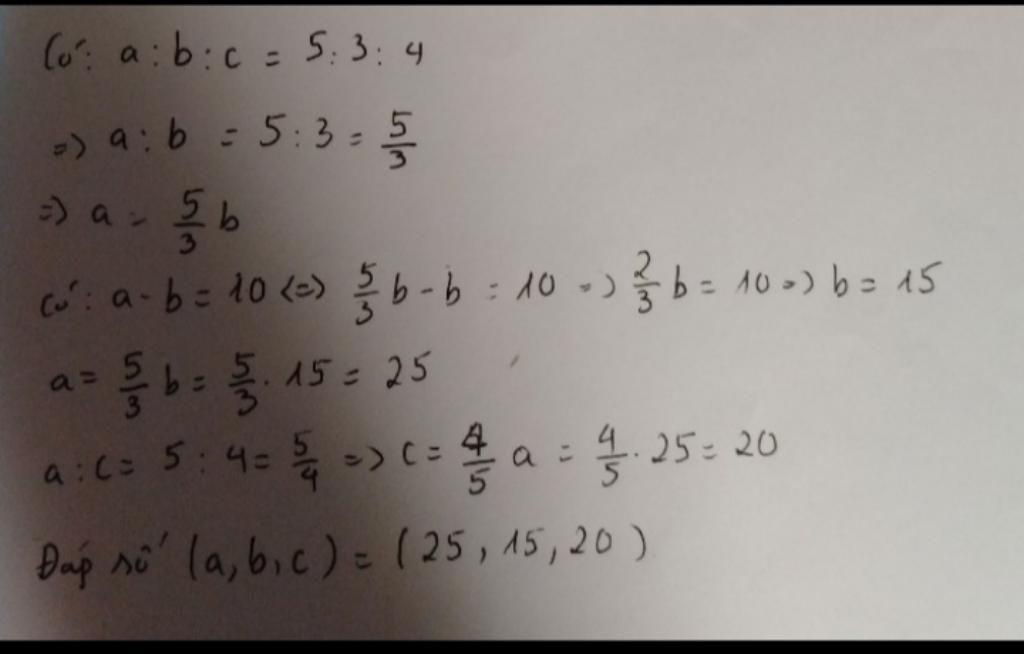 Có: a : b : c = 5 : 3 : 4
=> a : b = 5 : 3 = 5/3
=> a = 5/3 b
Có: a - b = 10 <=> 5/3 b - b = 10 => 2/3 b = 10 => b = 15
a = 5/3 b = 5/3 . 15 = 25
a : c = 5 : 4 = 5/4 => c = 4/5 a = 4/5 . 25 = 20
Đáp số (a, b, c) = (25, 15, 20)